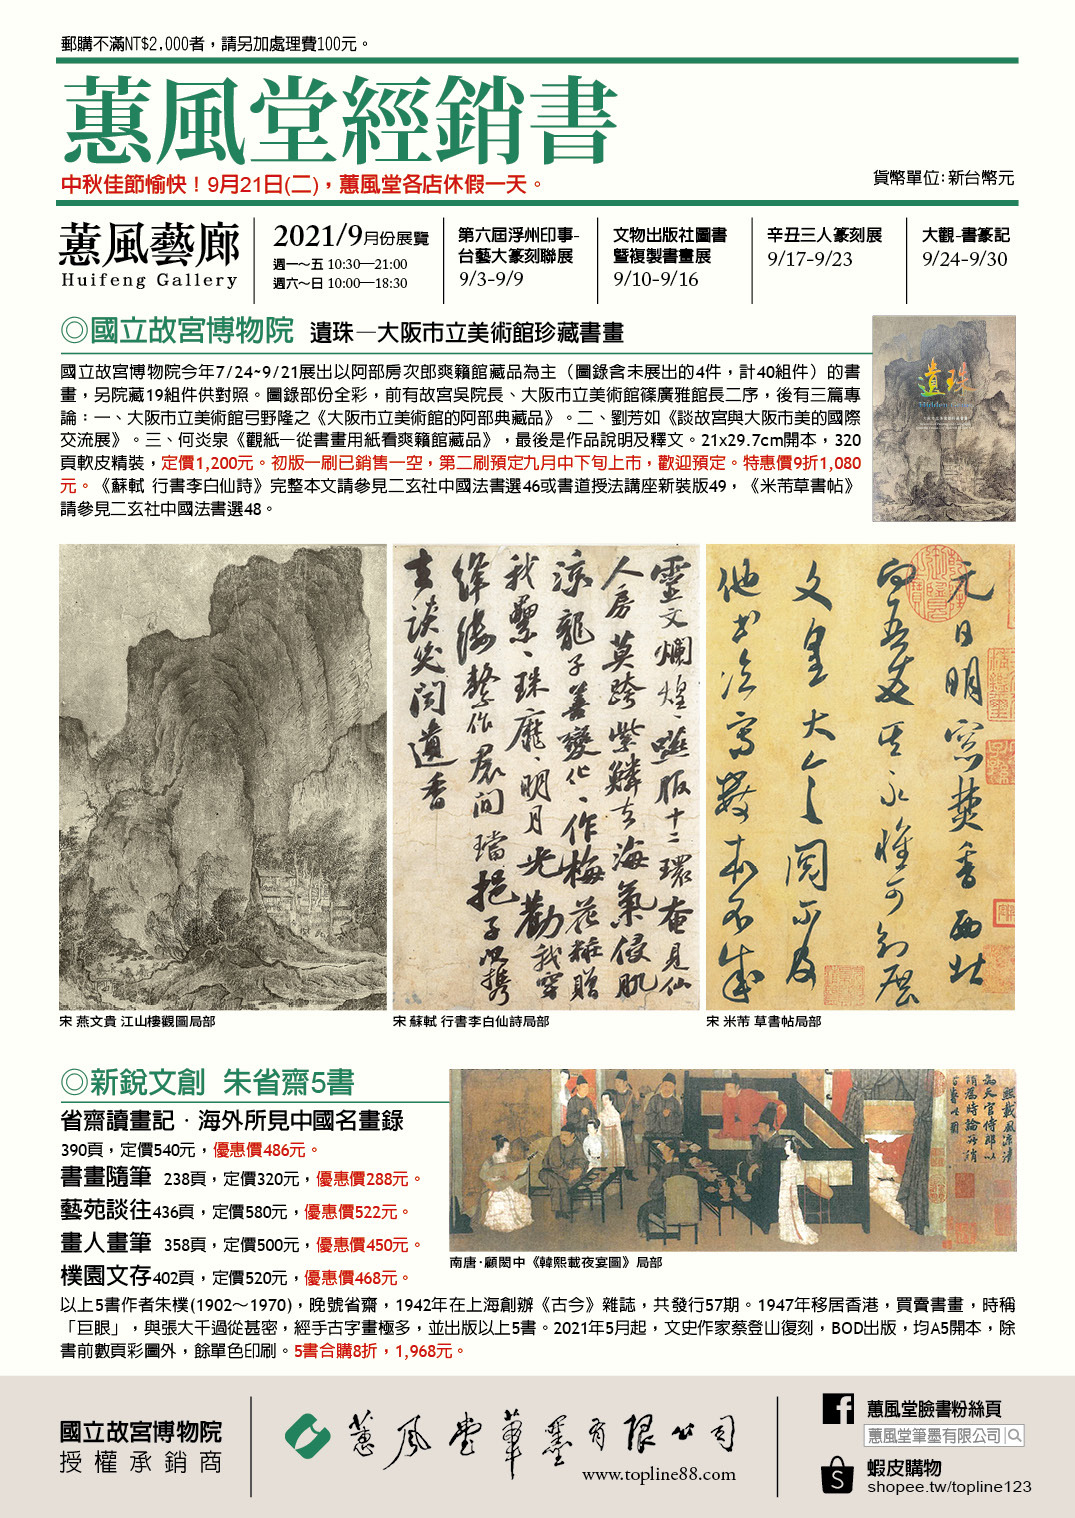 郵購不滿NT$2,000者，請另加處理費100元。
蕙風堂經銷書
中秋佳節愉快！9月21日(二)，蕙風堂各店休假一天。
貨幣單位:新台幣元
蕙風藝廊
Huifeng Gallery
2021/9月份展覽
週一～五 10:30—21:00
週六～日 10:00—18:30
第六屆浮州印事-
台藝大篆刻聯展
9/3-9/9
文物出版社圖書
暨複製書畫展
9/10-9/16
辛丑三人篆刻展
9/17-9/23
大觀-書篆記
9/24-9/30
◎國立故宮博物院 遺珠—大阪市立美術館珍藏書畫
國立故宮博物院今年7/24~9/21展出以阿部房次郎爽籟館藏品為主（圖錄含未展出的4件，計40組件）的書
畫，另院藏19組件供對照。圖錄部份全彩，前有故宮吳院長、大阪市立美術館篠廣雅館長二序，後有三篇專
論：一、大阪市立美術館弓野隆之《大阪市立美術館的阿部典藏品》。二、劉芳如《談故宮與大阪市美的國際
交流展》。三、何炎泉《觀紙—從書畫用紙看爽籟館藏品》，最後是作品說明及釋文。21x29.7cm開本，320
頁軟皮精裝，定價1,200元。初版一刷已銷售一空，第二刷預定九月中下旬上市，歡迎預定。特惠價9折1,080
元。《蘇軾 行書李白仙詩》完整本文請參見二玄社中國法書選46或書道授法講座新裝版49，《米芾草書帖》
請參見二玄社中國法書選48。
遺珠
靈文爛煌煌蹤服十二環奄見仙
人房莫跨紫鱗去海氣侵肌
涼龍子善變化作梅花粧贈
我纍纍珠靡靡明月光勸我穿
絳縷繫作裙間璫挹子以攜
去談笑聞遺香
元日明窓焚香西北
向吾友其永懷可知展
文皇大令閱不及
他書臨寫數本不成
宋 燕文貴 江山樓觀圖局部
宋 蘇軾 行書李白仙詩局部
宋 米芾 草書帖局部
◎新銳文創 朱省齋5書
省齋讀畫記．海外所見中國名畫錄
390頁，定價540元，優惠價486元。
書畫隨筆 238頁，定價320元，優惠價288元。
藝苑談往436頁，定價580元，優惠價522元。
畫人畫筆 358頁，定價500元，優惠價450元。
樸園文存402頁，定價520元，優惠價468元。
南唐·顧閎中《韓熙載夜宴圖》局部
以上5書作者朱樸(1902～1970)，晚號省齋，1942年在上海創辦《古今》雜誌，共發行57期。1947年移居香港，買賣書畫，時稱
「巨眼」，與張大千過從甚密，經手古字畫極多，並出版以上5書。2021年5月起，文史作家蔡登山復刻，BOD出版，均A5開本，除
書前數頁彩圖外，餘單色印刷。5書合購8折，1,968元。
國立故宮博物院
授權承銷商
蕙風堂筆墨有限公司
www.topline88.com
蕙風堂臉書粉絲頁
蕙風堂筆墨有限公司
蝦皮購物
shopee.tw/topline123